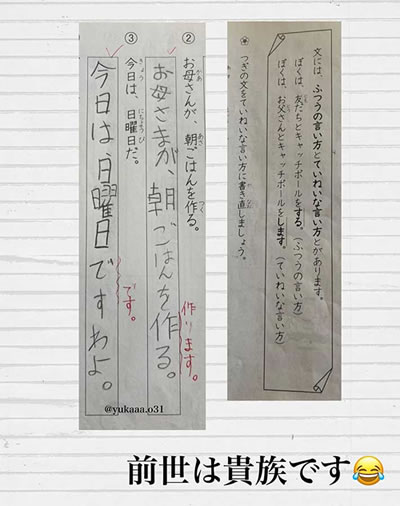 文には、ふつうの言い方とていねいな言い方とがあります。
ぼくは、友だちとキャッチボールをする。(ふつうの言い方)
ぼくは、お父さんとキャッチボールをします。(ていねいな言い方)
※ つぎの文をていねいな言い方に書き直しましょう。
② お母さんが、朝ごはんを作る。
お母さまが、朝ごはんを作る。
作ります。
③ 今日は、日曜日だ。
今日は、日曜日ですわよ。
です。
@yukaaa.o31
前世は貴族です😂